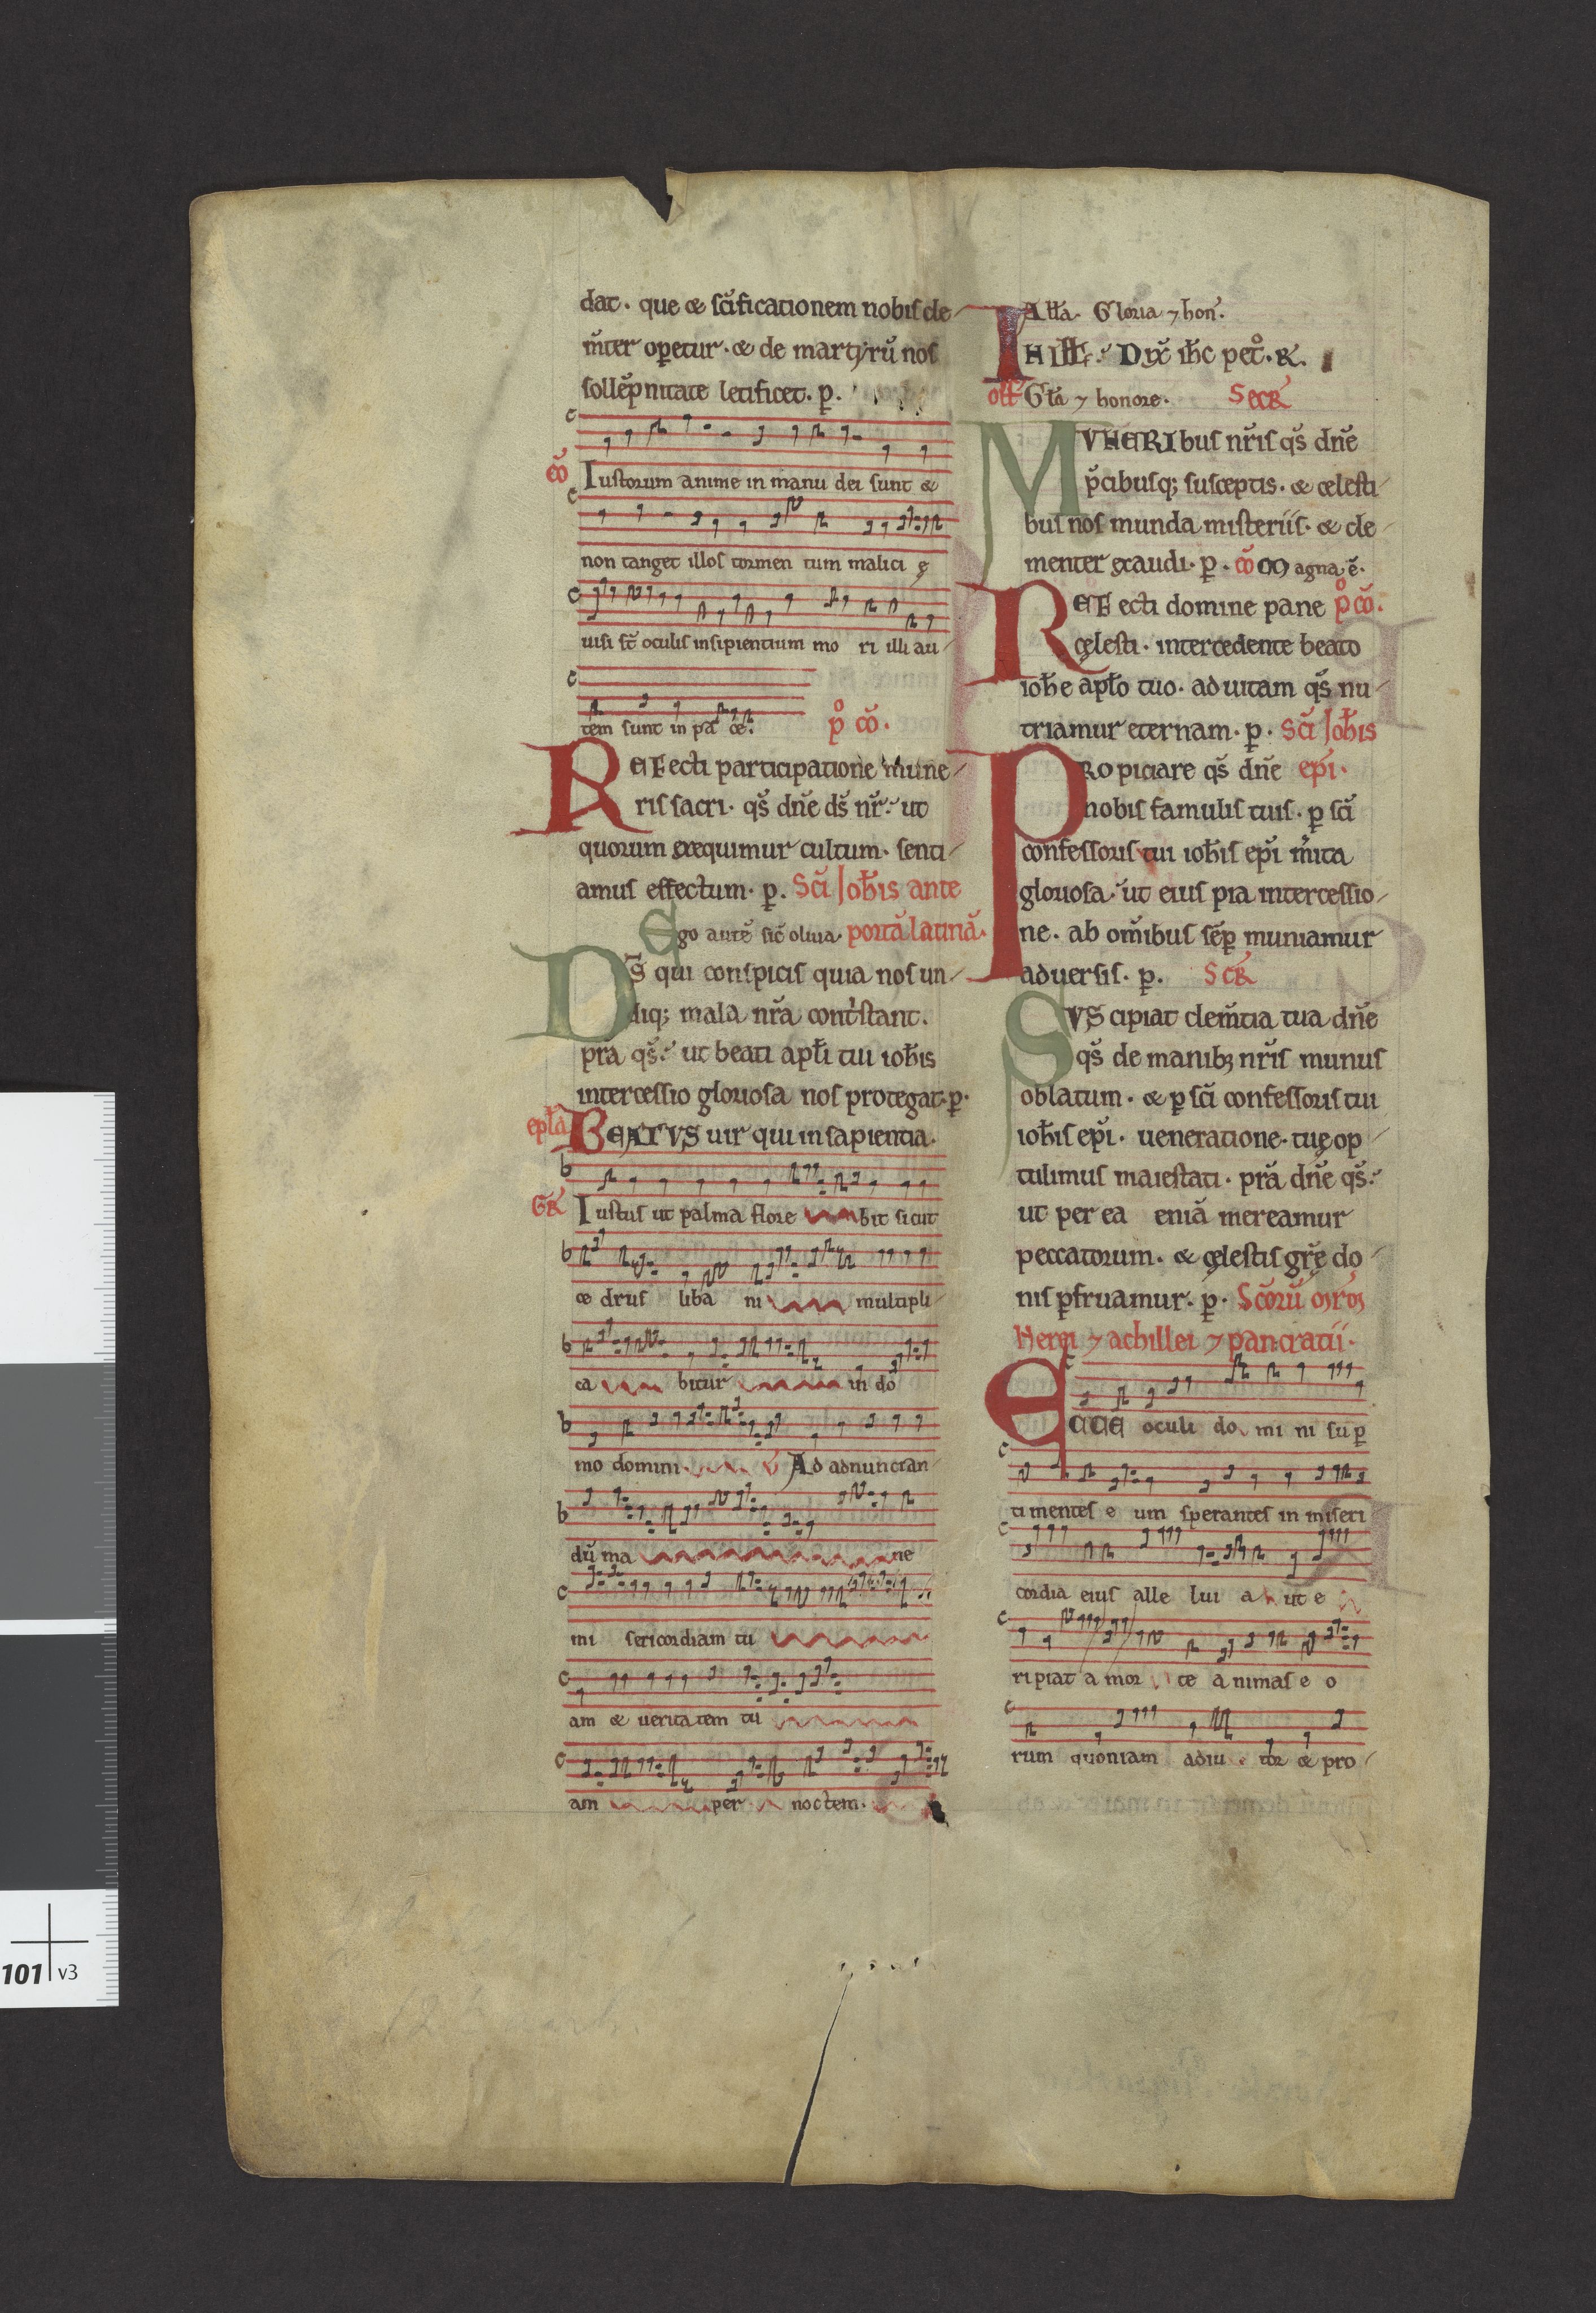 dat. que & sc̄ificationem nobis cle-
m̄ter op̲etur. & de martyrū nos
sollēpnitate letificet. p̲.
cō Iustorum anime in manu dei sunt &
non tanget illos tormen tum malici ę
uisi st̄ oculis insipientium mo ri illi au
tem sunt in pa ce. p̊ cō.
REFecti participatione mune-
ris sacri. qs̄ dn̄e ds̄ nr̄. ut
quorum exequimur cultum. senti-
amus effectum. p̲. Sc̄i Ioh̄is ante
Ego autē sic̄ oliua. portā latinā.
DS̄ qui conspicis quia nos un-
diq; mala nr̄a cont͛stant.
pra qs̄. ut beati apl̄i tui ioh̄is
intercessio gloriosa nos protegat. p̲.
epl̄a BEATVS uir qui in sapientia.
GR̄ Iustus ut palma flore bit sicut
ce drus liba ni multipli
ca bitur in do
mo domini. V̄ Ad adnuncian
dū ma ne
mi sericordiam tu
am & ueritatem tu
am per noctem.
All̄a. Gloria ⁊ hon̄.
IN ILL̄. Dix̄ ih̄c pet̊. R.
off̄ Gl̄a ⁊ honore. SecR̄
MVNERIbus nr̄is qs̄ dn̄e
p̄cibusq; susceptis. & celesti-
bus nos munda misteriis. & cle-
menter exaudi. p̲. cō Magna ē.
REFecti domine pane p̊ cō.
cęlesti. intercedente beato
ioh̄e apl̄o tuo. ad uitam qs̄ nu-
triamur eternam. p̲. Sc̄i Ioh̄is
PROpiciare qs̄ dn̄e ep̄i.
nobis famulis tuis. p̲ sc̄i
confessoris tui ioh̄is ep̄i m͛ita
gloriosa. ut eius pia intercessio-
ne. ab om̄ibus sēp̲ muniamur
aduersis. p̲. ScR̄
SVScipiat clem̄tia tua dn̄e
qs̄ de manibꝫ nr̄is munus
oblatum. & p̲ sc̄i confessoris tui
ioh̄is ep̄i. ueneratione. tuę op-
tulimus maiestati. prā dn̄e qs̄.
ut per ea eniā mereamur
peccatorum. & cęlestis gr̄ę do-
nis p̲fruamur. p̲. Sc̄orū mꝫrꝫ
Nerei ⁊ achillei ⁊ pancratii.
ECCE oculi do mi ni sup̲
ti mentes e um sperantes in miseri
cordia eius alle lui a ut e
ripiat a mor te a nimas e o
rum quoniam adiu tor & pro-